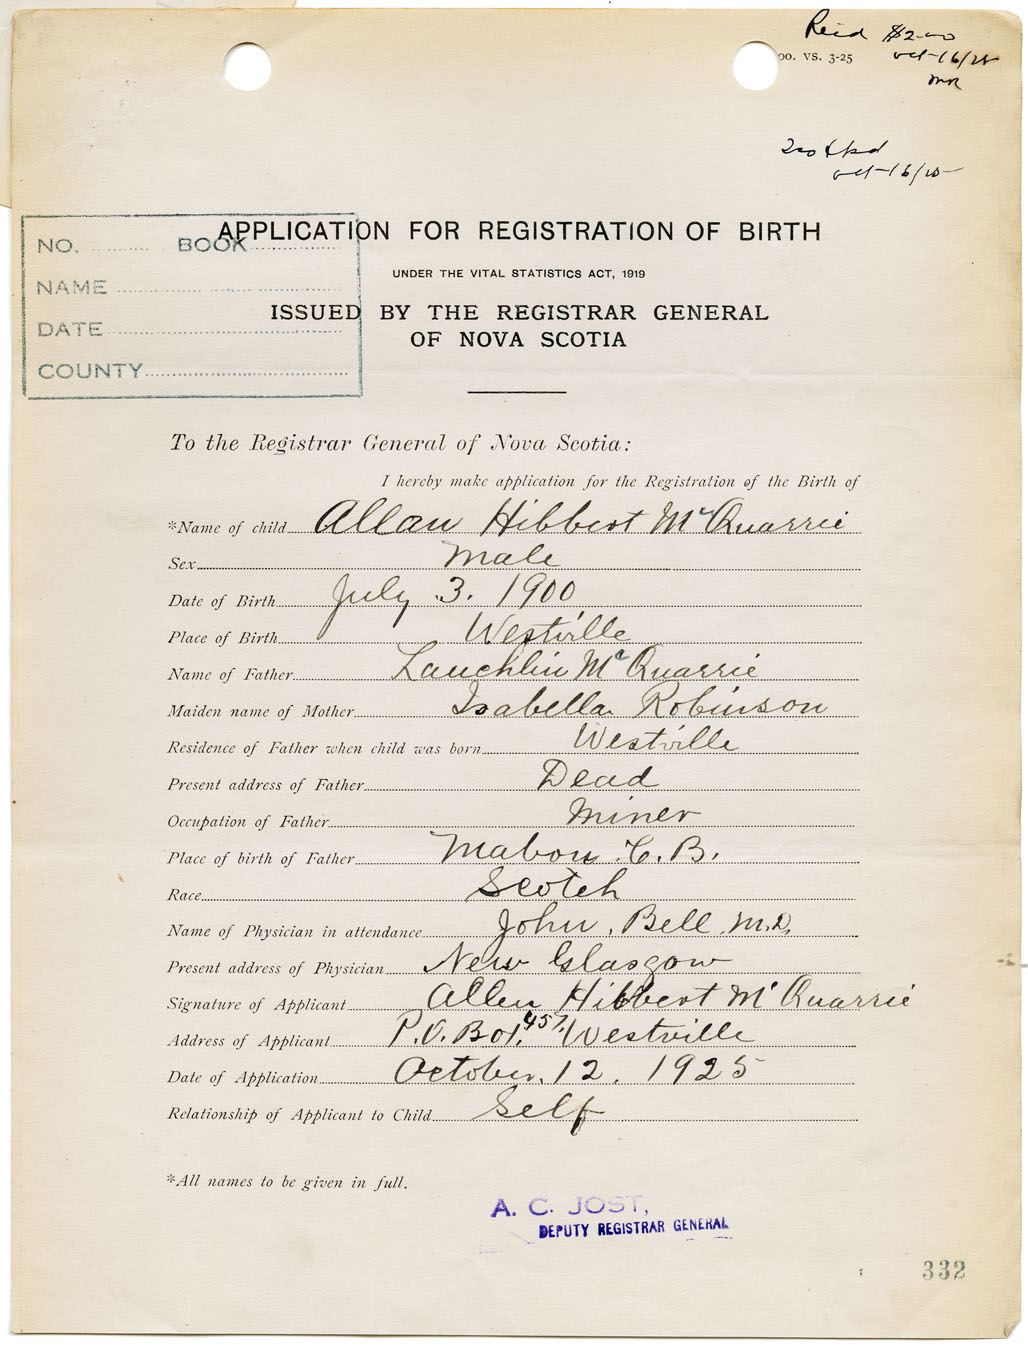 Recd $2.00
00. VS. 3-25 Oct-16/25
MR
Oct-16/25
NO. BOOK
NAME
DATE
COUNTY
APPLICATION FOR REGISTRATION OF BIRTH
UNDER THE VITAL STATISTICS ACT, 1919
ISSUED BY THE REGISTRAR GENERAL
OF NOVA SCOTIA
To the Registrar General of Nova Scotia:
I hereby make application for the Registration of the Birth of
*Name of child Allan Hibbert McQuarrie
Sex Male
Date of Birth July 3. 1900
Place of Birth Westville
Name of Father Lauchlin McQuarrie
Maiden name of Mother Isabella Robinson
Residence of Father when child was born Westville
Present address of Father Dead
Occupation of Father Miner
Place of birth of Father Mabou C.B.
Race Scotch
Name of Physician in attendance John Bell M.D.
Present address of Physician New Glasgow
Signature of Applicant Allen Hibbert McQuarrie
Address of Applicant P.O. Box 457, Westville
Date of Application October. 12. 1925
Relationship of Applicant to Child Self
*All names to be given in full.
A. C. JOST,
DEPUTY REGISTRAR GENERAL
332